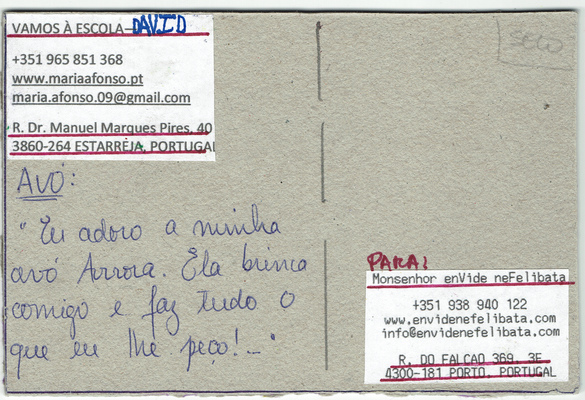 VAMOS À ESCOLA-DAVID
+351 965 851 368
www.mariaafonso.pt
maria.afonso.09@gmail.com
R. Dr. Manuel Marques Pires, 40
3860-264 ESTARREJA, PORTUGAL
AVÓ:
"Eu adoro a minha
avó Aurora. Ela brinca
comigo e faz tudo o
que eu lhe peço!..."
SELO
PARA:
Monsenhor enVide neFelibata
+351 938 940 122
www.envidenefelibata.com
info@envidenefelibata.com
R. DO FALCAO 369, 3E
4300-181 PORTO, PORTUGAL